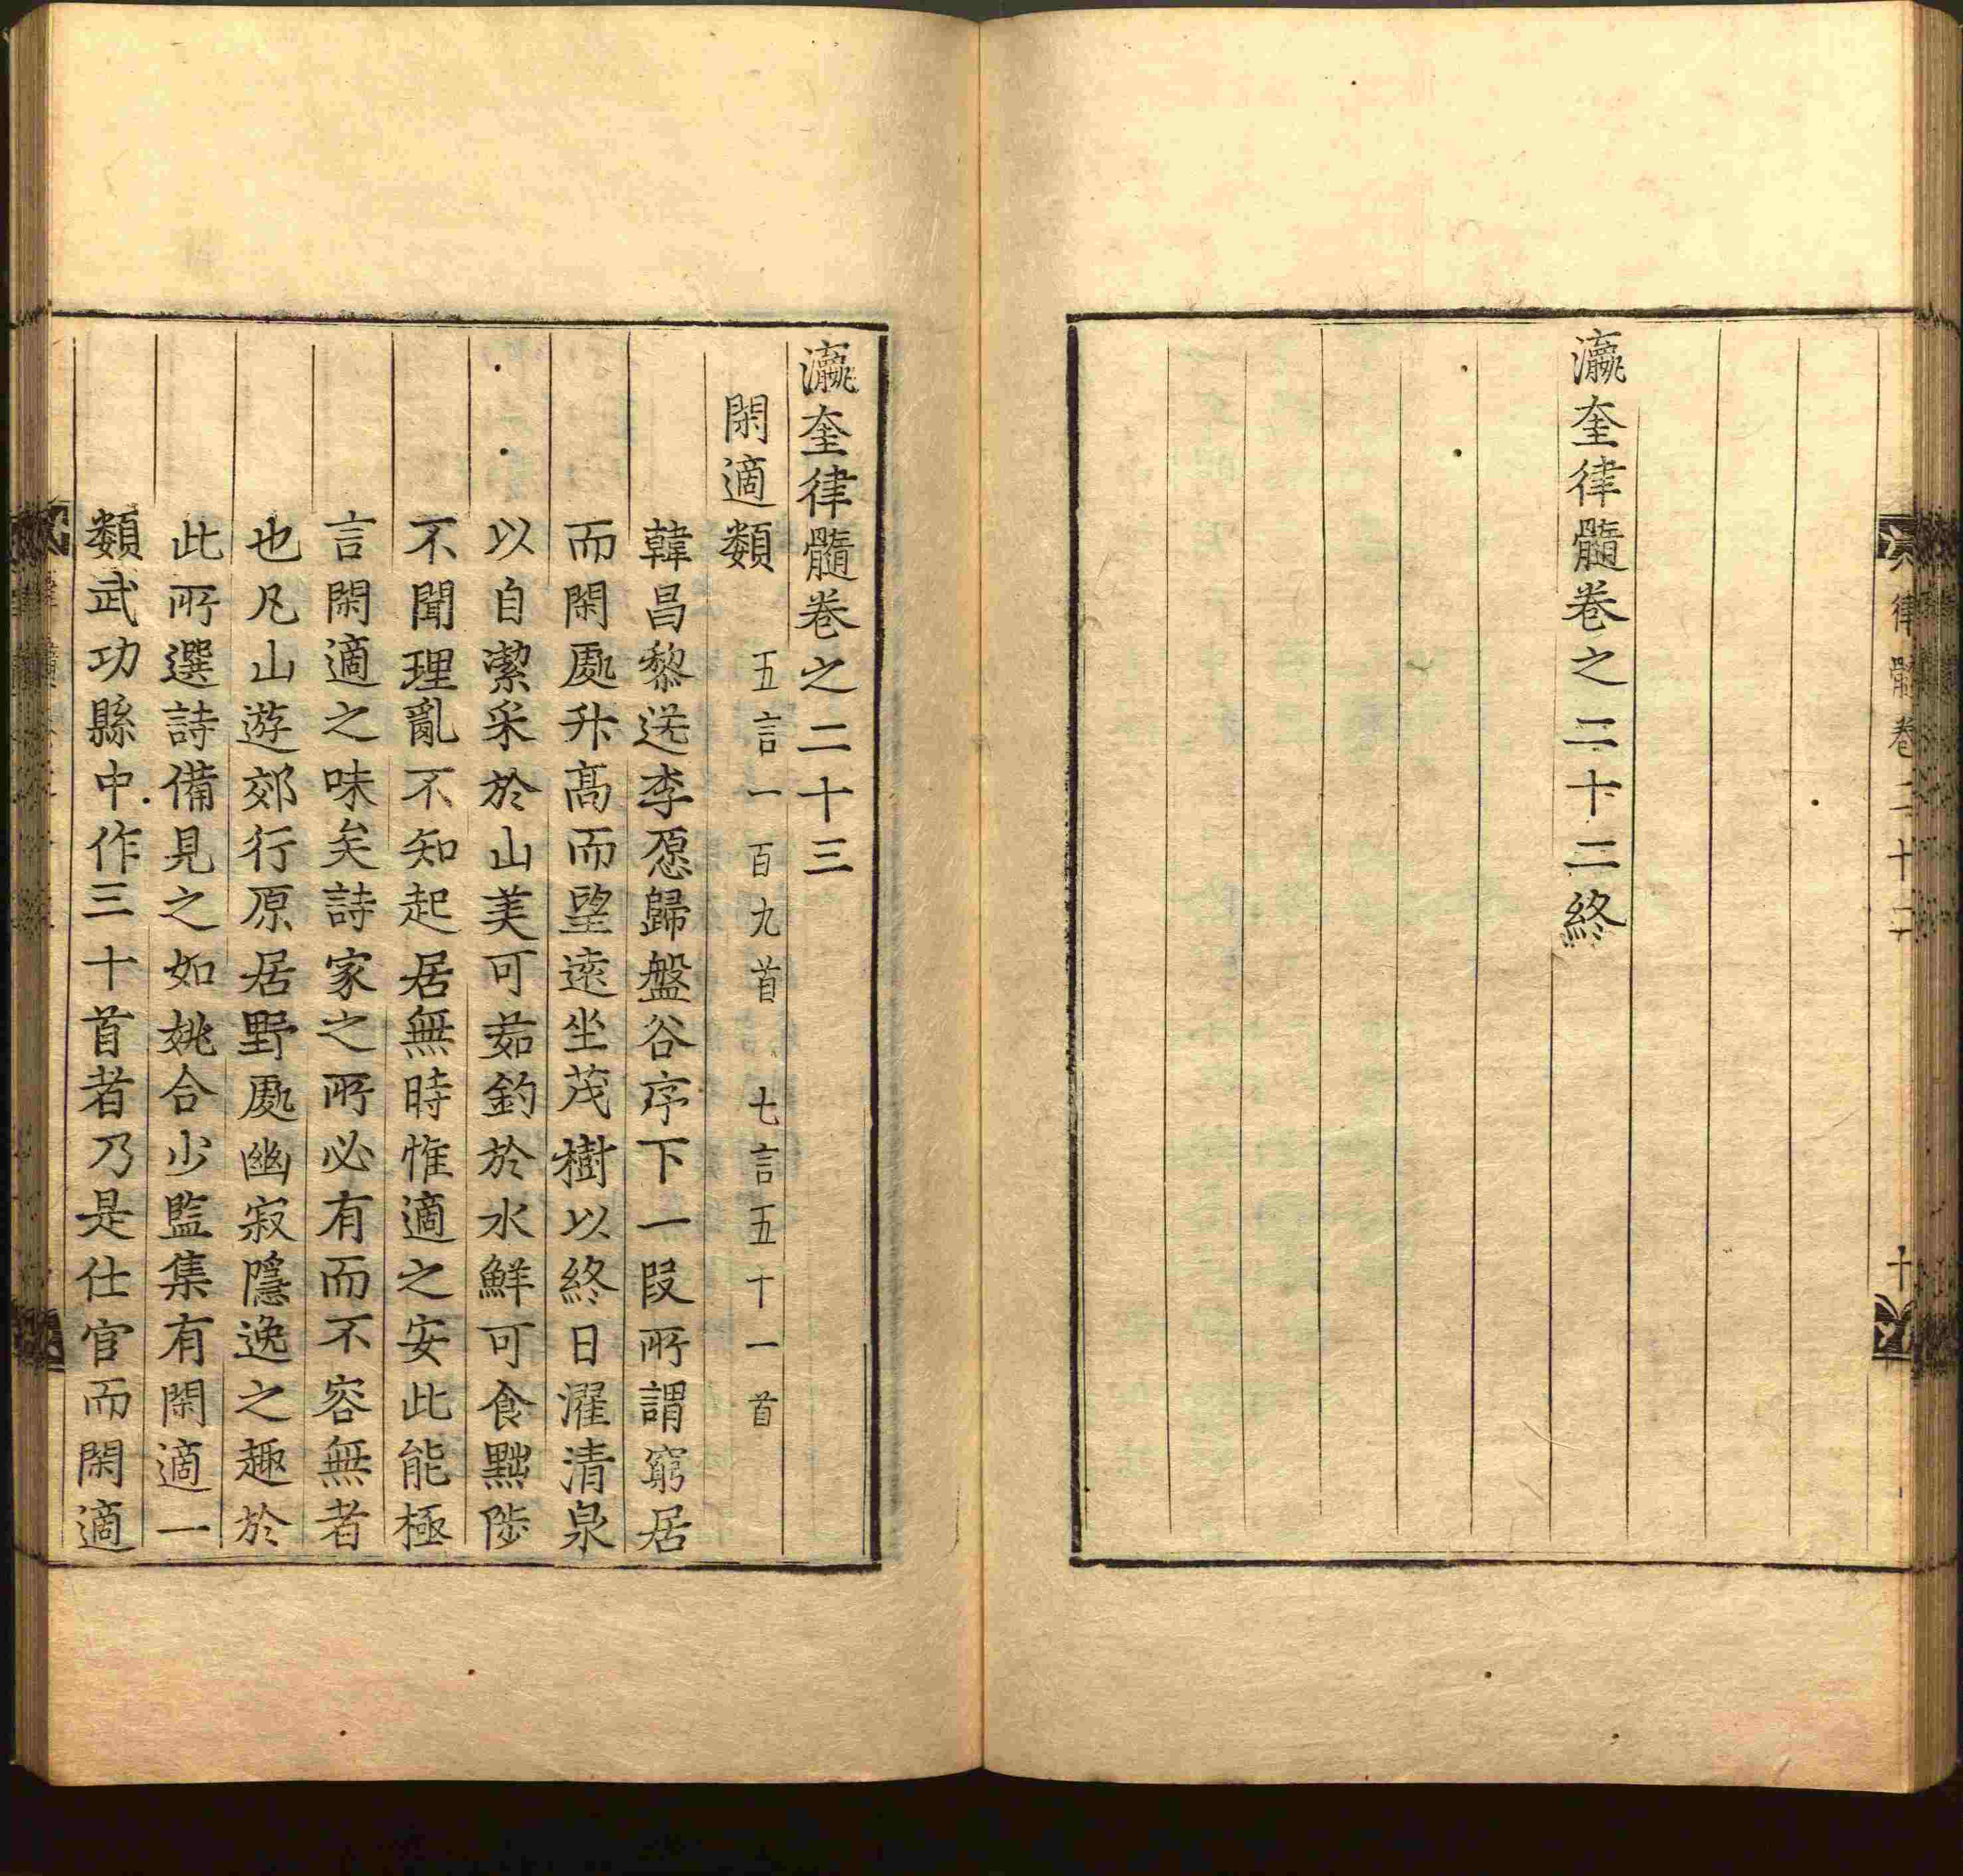 律髓卷二十二
十
瀛奎律髓卷之二十二終
瀛奎律髓卷之二十三
閑適類 五言一百九首 七言五十一首
韓昌黎送李愿歸盤谷序下一段所謂窮居
而閑處升高而望遠坐茂樹以終日濯清泉
以自潔采於山美可茹釣於水鮮可食黜陟
不聞理亂不知起居無時惟適之安此能極
言閑適之味矣詩家之所必有而不容無者
也凡山遊郊行原居野處幽寂隱逸之趣於
此所選詩備見之如姚合少監集有閑適一
類武功縣中作三十首者乃是仕官而閑適